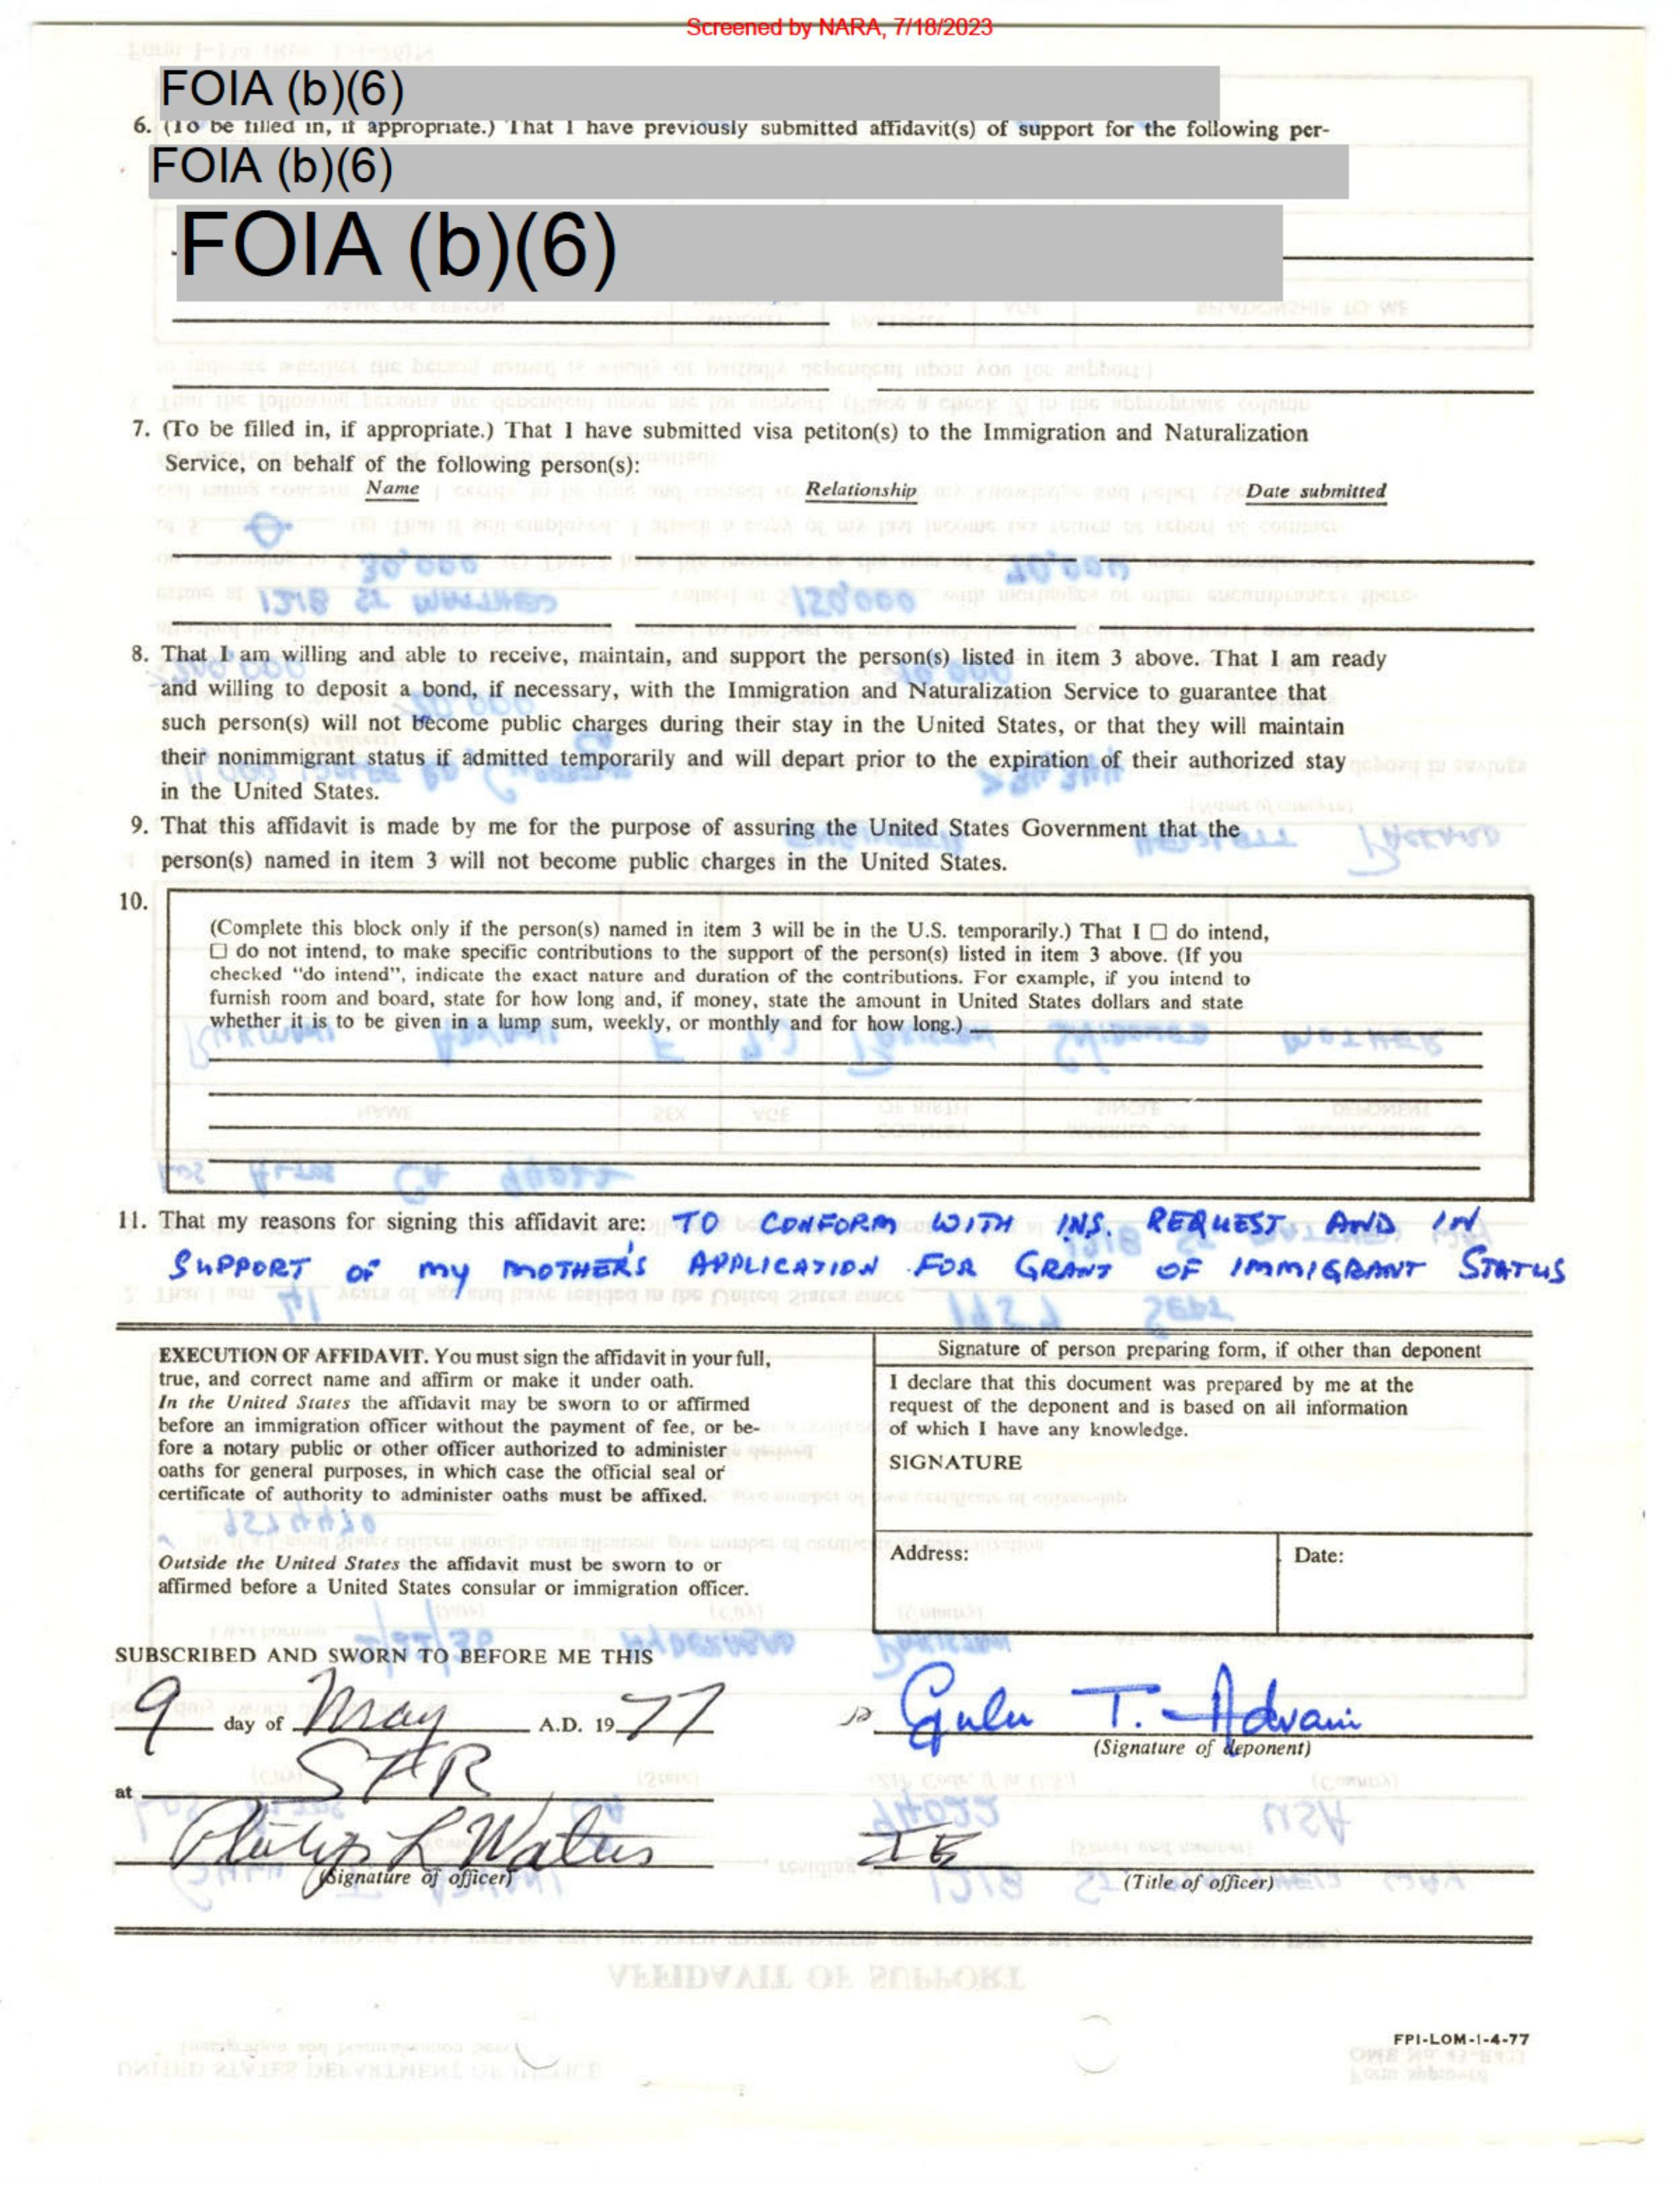 Screened by NARA, 7/18/2023
FOIA (b)(6)
6. (To be filled in, if appropriate.) That I have previously submitted affidavit(s) of support for the following per-
FOIA (b)(6)
FOIA (b)(6)
7. (To be filled in, if appropriate.) That I have submitted visa petiton(s) to the Immigration and Naturalization
Service, on behalf of the following person(s):
Name Relationship Date submitted
8. That I am willing and able to receive, maintain, and support the person(s) listed in item 3 above. That I am ready
and willing to deposit a bond, if necessary, with the Immigration and Naturalization Service to guarantee that
such person(s) will not become public charges during their stay in the United States, or that they will maintain
their nonimmigrant status if admitted temporarily and will depart prior to the expiration of their authorized stay
in the United States.
9. That this affidavit is made by me for the purpose of assuring the United States Government that the
person(s) named in item 3 will not become public charges in the United States.
10.
(Complete this block only if the person(s) named in item 3 will be in the U.S. temporarily.) That I ☐ do intend,
☐ do not intend, to make specific contributions to the support of the person(s) listed in item 3 above. (If you
checked "do intend", indicate the exact nature and duration of the contributions. For example, if you intend to
furnish room and board, state for how long and, if money, state the amount in United States dollars and state
whether it is to be given in a lump sum, weekly, or monthly and for how long.)
11. That my reasons for signing this affidavit are: TO CONFORM WITH INS. REQUEST AND IN
SUPPORT OF MY MOTHER'S APPLICATION FOR GRANT OF IMMIGRANT STATUS
EXECUTION OF AFFIDAVIT. You must sign the affidavit in your full,
true, and correct name and affirm or make it under oath.
In the United States the affidavit may be sworn to or affirmed
before an immigration officer without the payment of fee, or be-
fore a notary public or other officer authorized to administer
oaths for general purposes, in which case the official seal or
certificate of authority to administer oaths must be affixed.
Outside the United States the affidavit must be sworn to or
affirmed before a United States consular or immigration officer.
Signature of person preparing form, if other than deponent
I declare that this document was prepared by me at the
request of the deponent and is based on all information
of which I have any knowledge.
SIGNATURE
Address: Date:
SUBSCRIBED AND SWORN TO BEFORE ME THIS
9 day of May A.D. 1977
Gulu T. Advani
(Signature of deponent)
at SFR
Philip L Waters IE
(Signature of officer) (Title of officer)
FPI-LOM-1-4-77